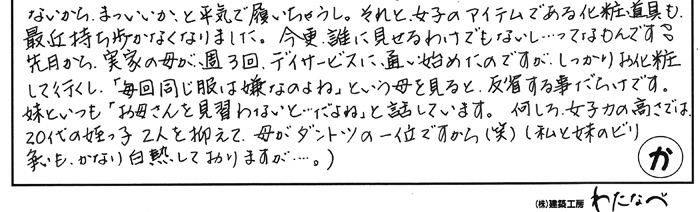 ないから、まっいいか、と平気で履いちゃうし。それと、女子のアイテムである化粧道具も、
最近持ち歩かなくなりました。今更、誰に見せるわけでもないし…ってなもんです。
先日から、実家の母が、週3回、デイサービスに、通い始めたのですが、しっかりお化粧
して行くし、「毎回同じ服は嫌なのよね」という母を見ると、反省する事だらけです。
妹といつも「お母さんを見習わないと…だよね」と話しています。何しろ、女子力の高さでは、
20代の姪っ子2人を抑えて、母がダントツの一位ですから(笑)(私と妹のビリ
争いも、かなり白熱しておりますが…。)
か
(株)建築工房 わたなべ